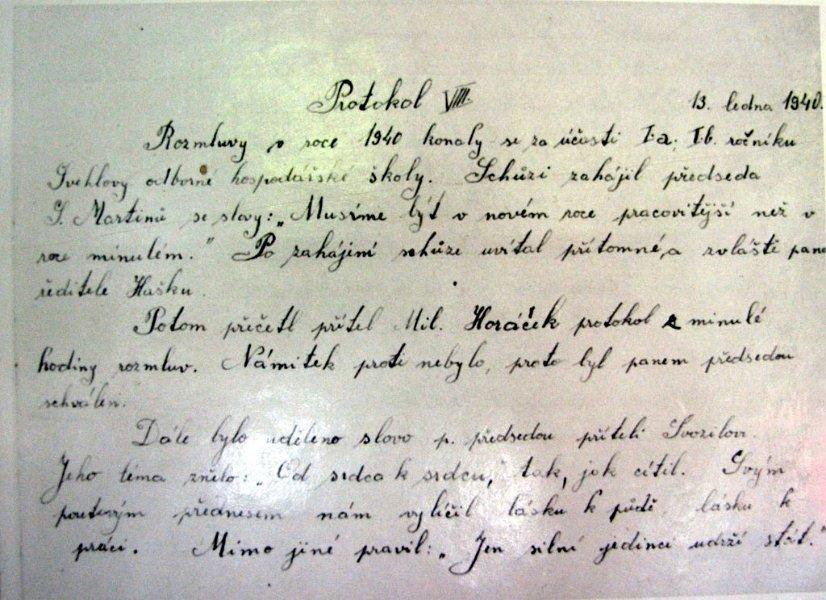 Protokol VIII. 13. ledna 1940.
Rozmluvy v roce 1940 konaly se za účasti I.a; I.b. ročníku
Švehlovy odborné hospodářské školy. Schůzi zahájil předseda
J. Martinů se slovy: „Musíme být v novém roce pracovitější než v
roce minulém." Po zahájení schůze uvítal přítomné, a zvláště pana
ředitele Hašku.
Potom přečetl přítel Mil. Horáček protokol z minulé
hodiny rozmluv. Námitek proti nebylo, proto byl panem předsedou
schválen.
Dále bylo uděleno slovo p. předsedou příteli Svozilovi.
Jeho téma znělo: „Od srdca k srdcu," tak, jak cítil. Svým
poutavým přednesem nám vylíčil lásku k půdě, lásku k
práci. Mimo jiné pravil: „Jen silní jedinci udrží stát."